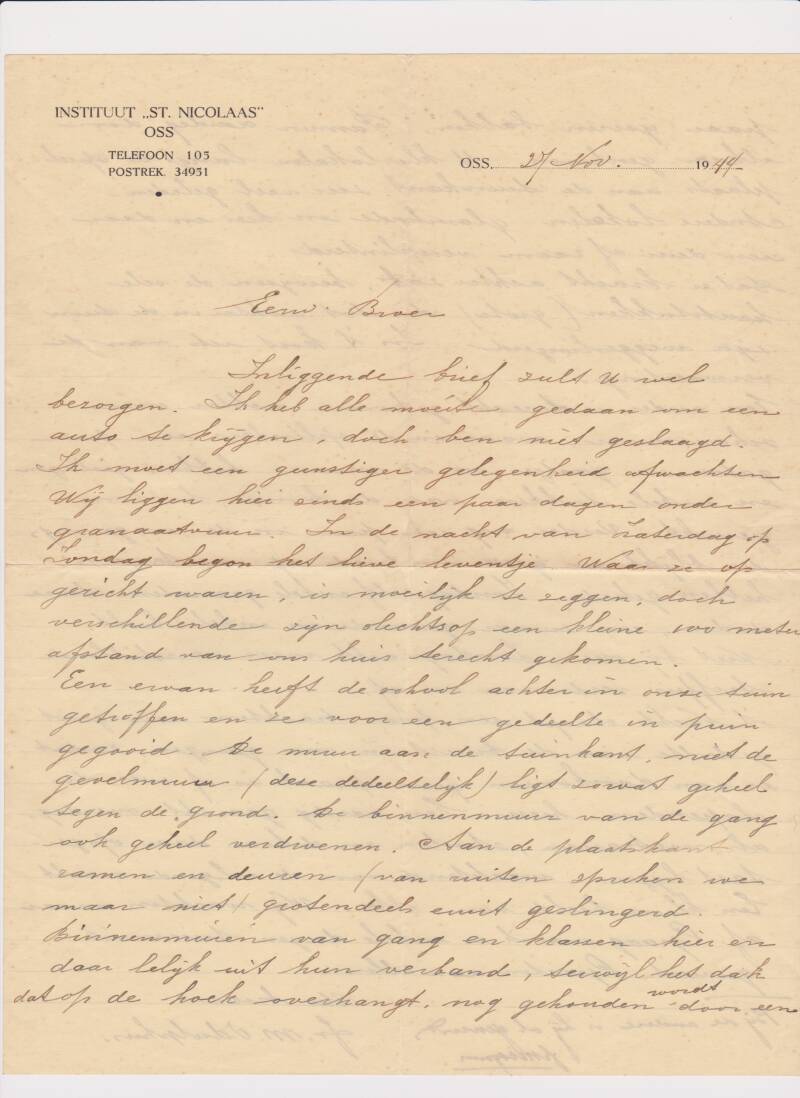 INSTITUUT „ST. NICOLAAS”
OSS
TELEFOON 105
POSTREK. 34951
OSS. 27 Nov. 1944
Eerw. Broer
Inliggende brief zult U wel
bezorgen. Ik heb alle moeite gedaan om een
auto te krijgen, doch ben niet geslaagd.
Ik moet een gunstiger gelegenheid afwachten
Wij liggen hier sinds een paar dagen onder
granaatvuur. In de nacht van Zaterdag op
Zondag begon het lieve leventje. Waar ze op
gericht waren, is moeilijk te zeggen, doch
verschillende zijn slechts op een kleine 100 meter
afstand van ons huis terecht gekomen.
Een ervan heeft de school achter in onze tuin
getroffen en ze voor een gedeelte in puin
gegooid. De muur aan de tuinkant, niet de
gevelmuur (deze dedeeltelijk) ligt zowat geheel
tegen de grond. De binnenmuur van de gang
ook geheel verdwenen. Aan de plaatskant
ramen en deuren (van ruiten spreken we
maar niet) grotendeels eruit geslingerd.
Binnenmuren van gang en klassen hier en
daar lelijk uit hun verband, terwijl het dak
dat op de hoek overhangt, nog gehouden wordt door een